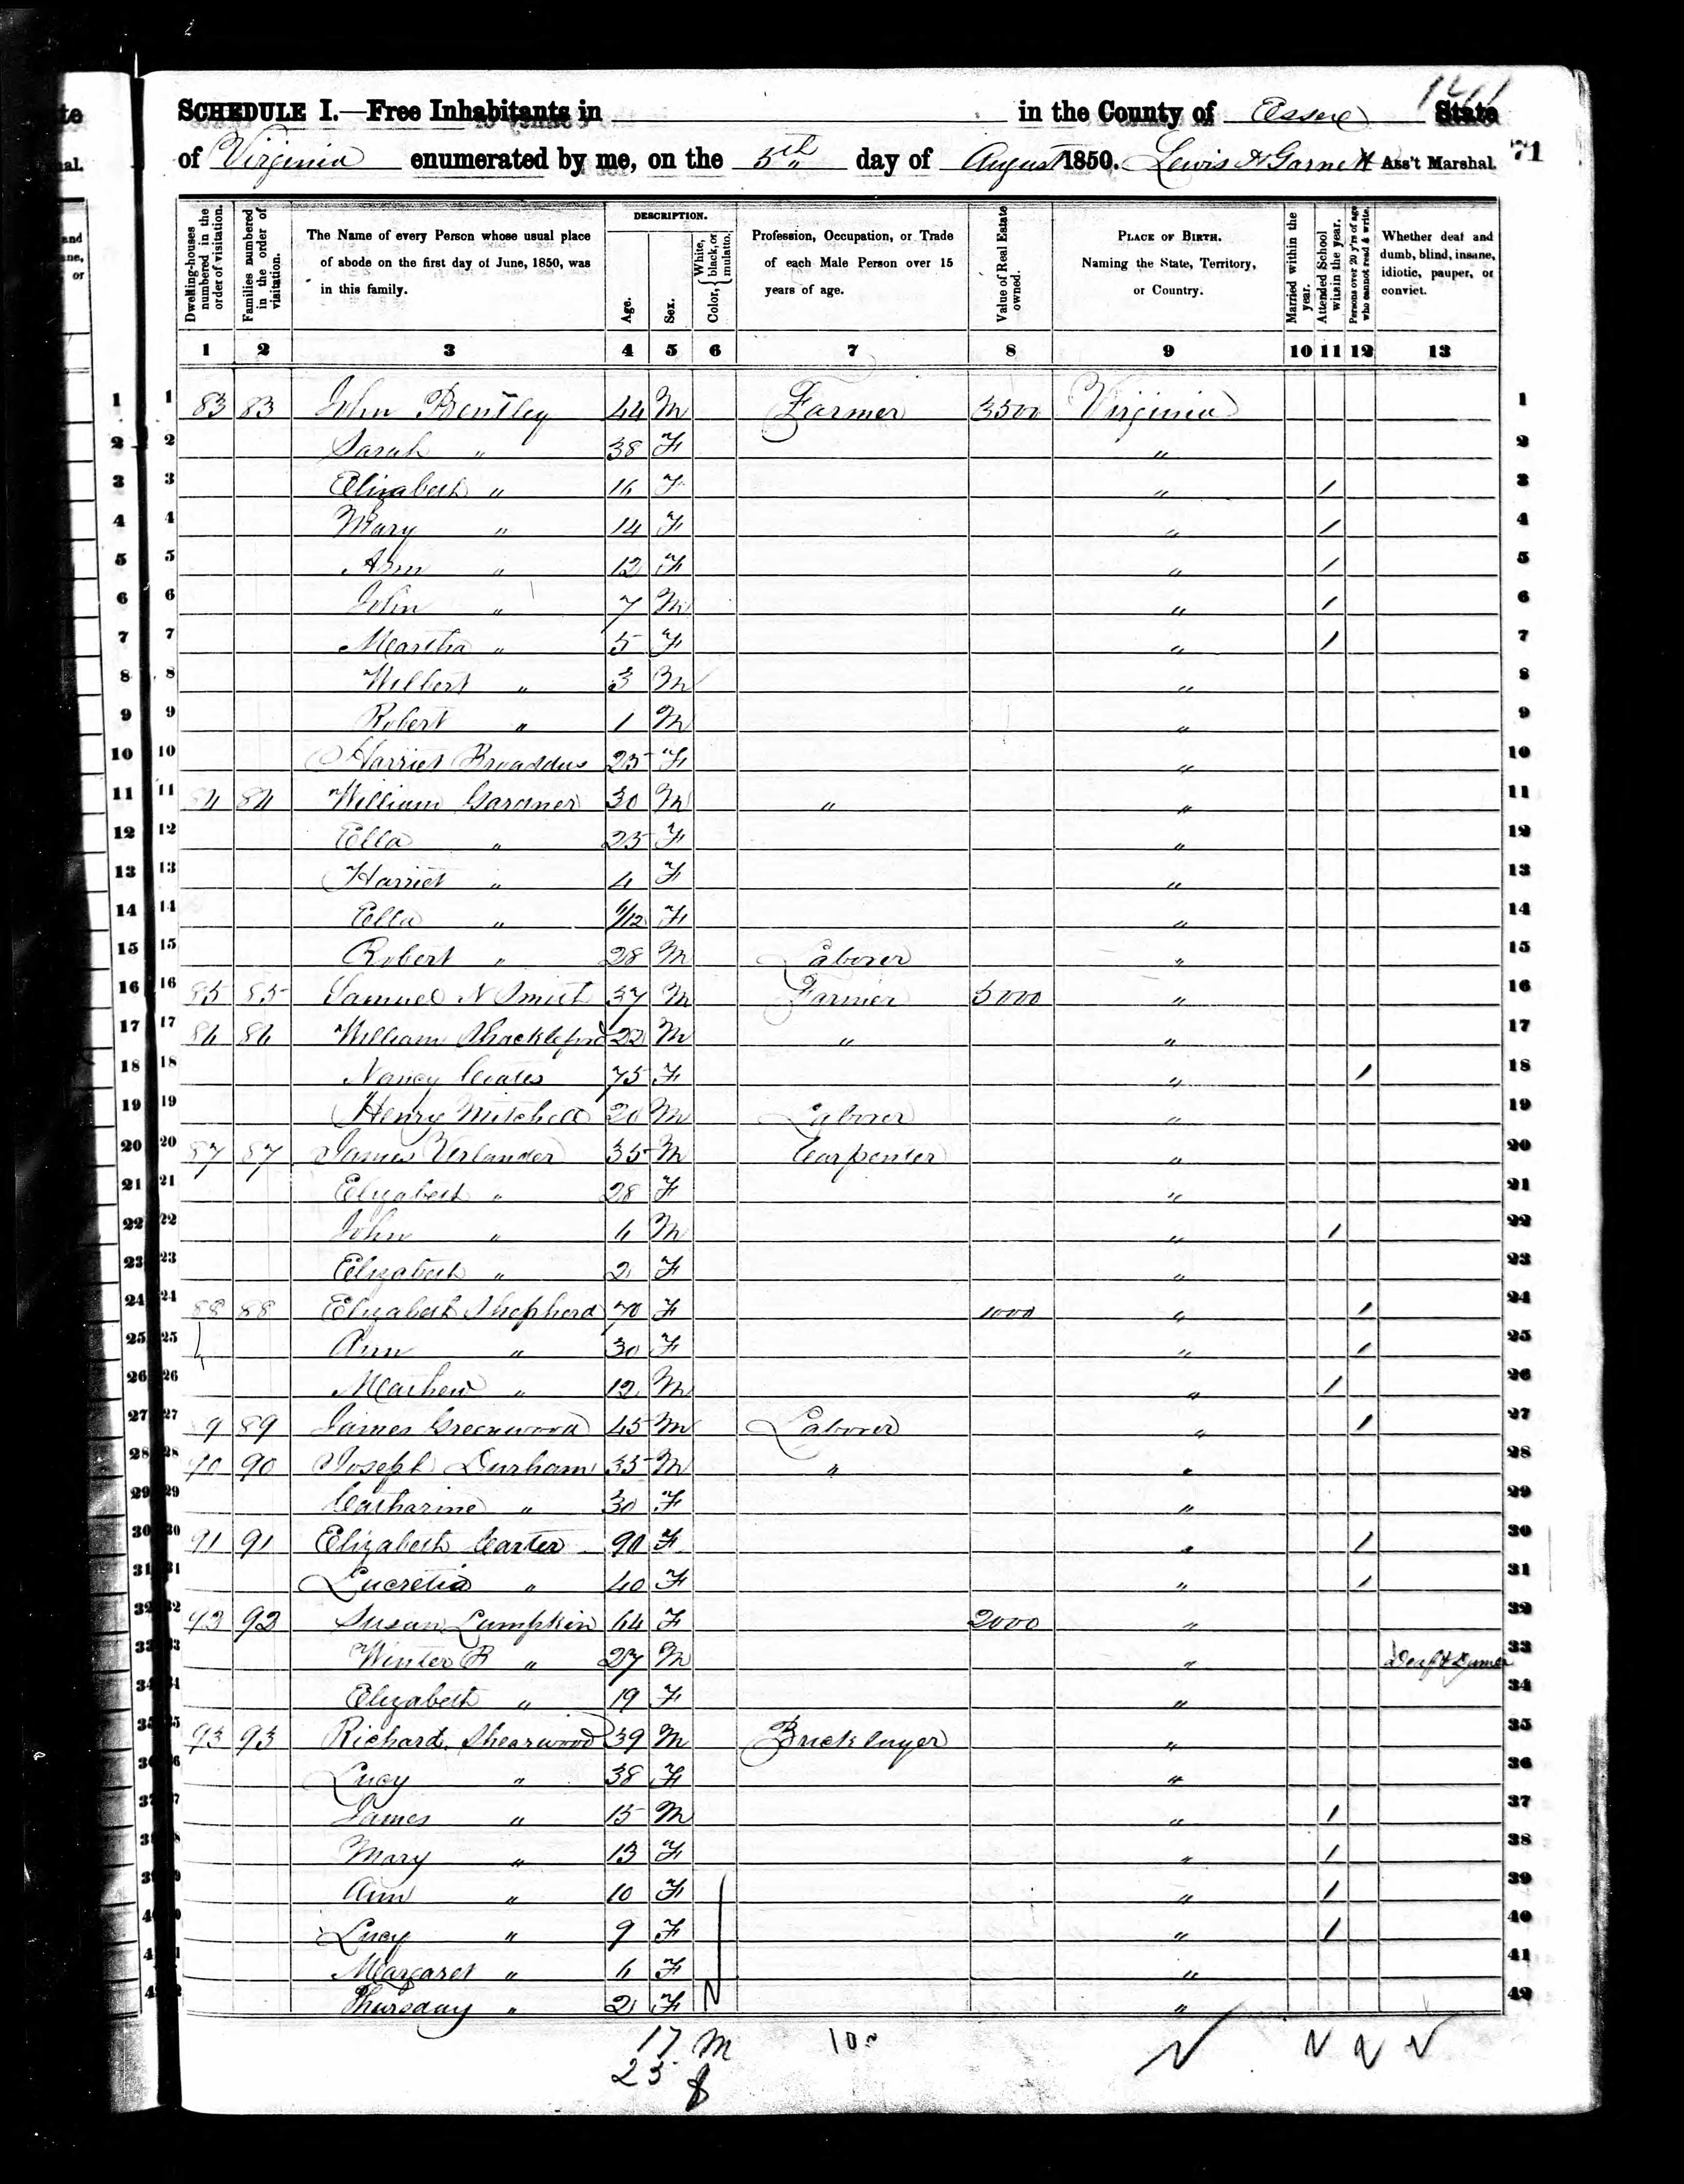 1411
SCHEDULE I.—Free Inhabitants in in the County of Essex State
of Virginia enumerated by me, on the 5th day of August 1850. Lewis H Garnett Ass't Marshal. 71
DESCRIPTION.
Dwelling-houses numbered in the order of visitation. Families numbered in the order of visitation. The Name of every Person whose usual place of abode on the first day of June, 1850, was in this family. Age. Sex. Color, { White, black, or mulatto. Profession, Occupation, or Trade of each Male Person over 15 years of age. Value of Real Estate owned. PLACE OF BIRTH. Naming the State, Territory, or Country. Married within the year. Attended School within the year. Persons over 20 y'rs of age who cannot read & write. Whether deaf and dumb, blind, insane, idiotic, pauper, or convict.
1 2 3 4 5 6 7 8 9 10 11 12 13
1 83 83 John Bentley 44 M Farmer 3500 Virginia 1
2 Sarah " 38 F " 2
3 Elizabeth " 16 F " / 3
4 Mary " 14 F " / 4
5 Ann " 12 F " / 5
6 John " 7 M " / 6
7 Martha " 5 F " / 7
8 Wilbert " 3 M " 8
9 Robert " 1 M " 9
10 Harriet Broaddus 25 F " 10
11 84 84 William Gardner 30 M " " 11
12 Ella " 25 F " 12
13 Harriet " 4 F " 13
14 Ella " 6/12 F " 14
15 Robert " 28 M Laborer " 15
16 85 85 Samuel N Smith 37 M Farmer 5000 " 16
17 86 86 William Shackleford 22 M " " 17
18 Nancy Coates 75 F " / 18
19 Henry Mitchell 20 M Laborer " 19
20 87 87 James Verlander 35 M Carpenter " 20
21 Elizabeth " 28 F " 21
22 John " 6 M " / 22
23 Elizabeth " 2 F " 23
24 88 88 Elizabeth Shepherd 70 F 1000 " / 24
25 Ann " 30 F " / 25
26 Mathew " 12 M " / 26
27 9 89 James Greenwood 45 M Laborer " / 27
28 90 90 Joseph Durham 35 M " " 28
29 Catharine " 30 F " 29
30 91 91 Elizabeth Carter 90 F " / 30
31 Lucretia " 40 F " / 31
32 92 92 Susan Lumpkin 64 F 2000 " 32
33 Winter B " 27 M " Deaf & Dumb 33
34 Elizabeth " 19 F " 34
35 93 93 Richard Shearwood 39 M Bricklayer " 35
36 Lucy " 38 F " 36
37 James " 15 M " / 37
38 Mary " 13 F " / 38
39 Ann " 10 F " / 39
40 Lucy " 9 F " / 40
41 Margaret " 6 F " 41
42 Thursday " 2 F " 42
17 M
25 f